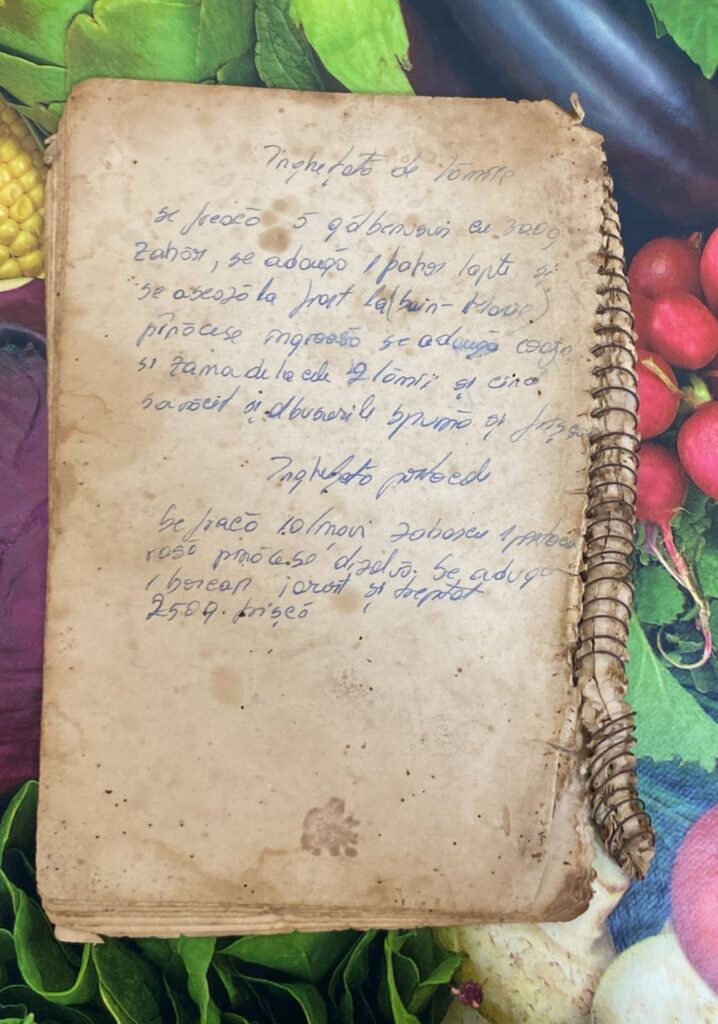 Înghețată de lămîie
se freacă 5 gălbenușuri cu 300g
zahăr, se adaugă 1 pahar lapte și
se așează la foc la (bain-Marie)
pînă ce se îngroașă se adaugă coaja
și zama de la cele 2 lămîi și cînd
s-a răcit și albușurile spumă și frișca
Înghețată portocale
se freacă zahăru 1 portoca
rasă pînă ce se dizolvă. Se aduga
1 borcan iaurt și treptat
250g. frișcă